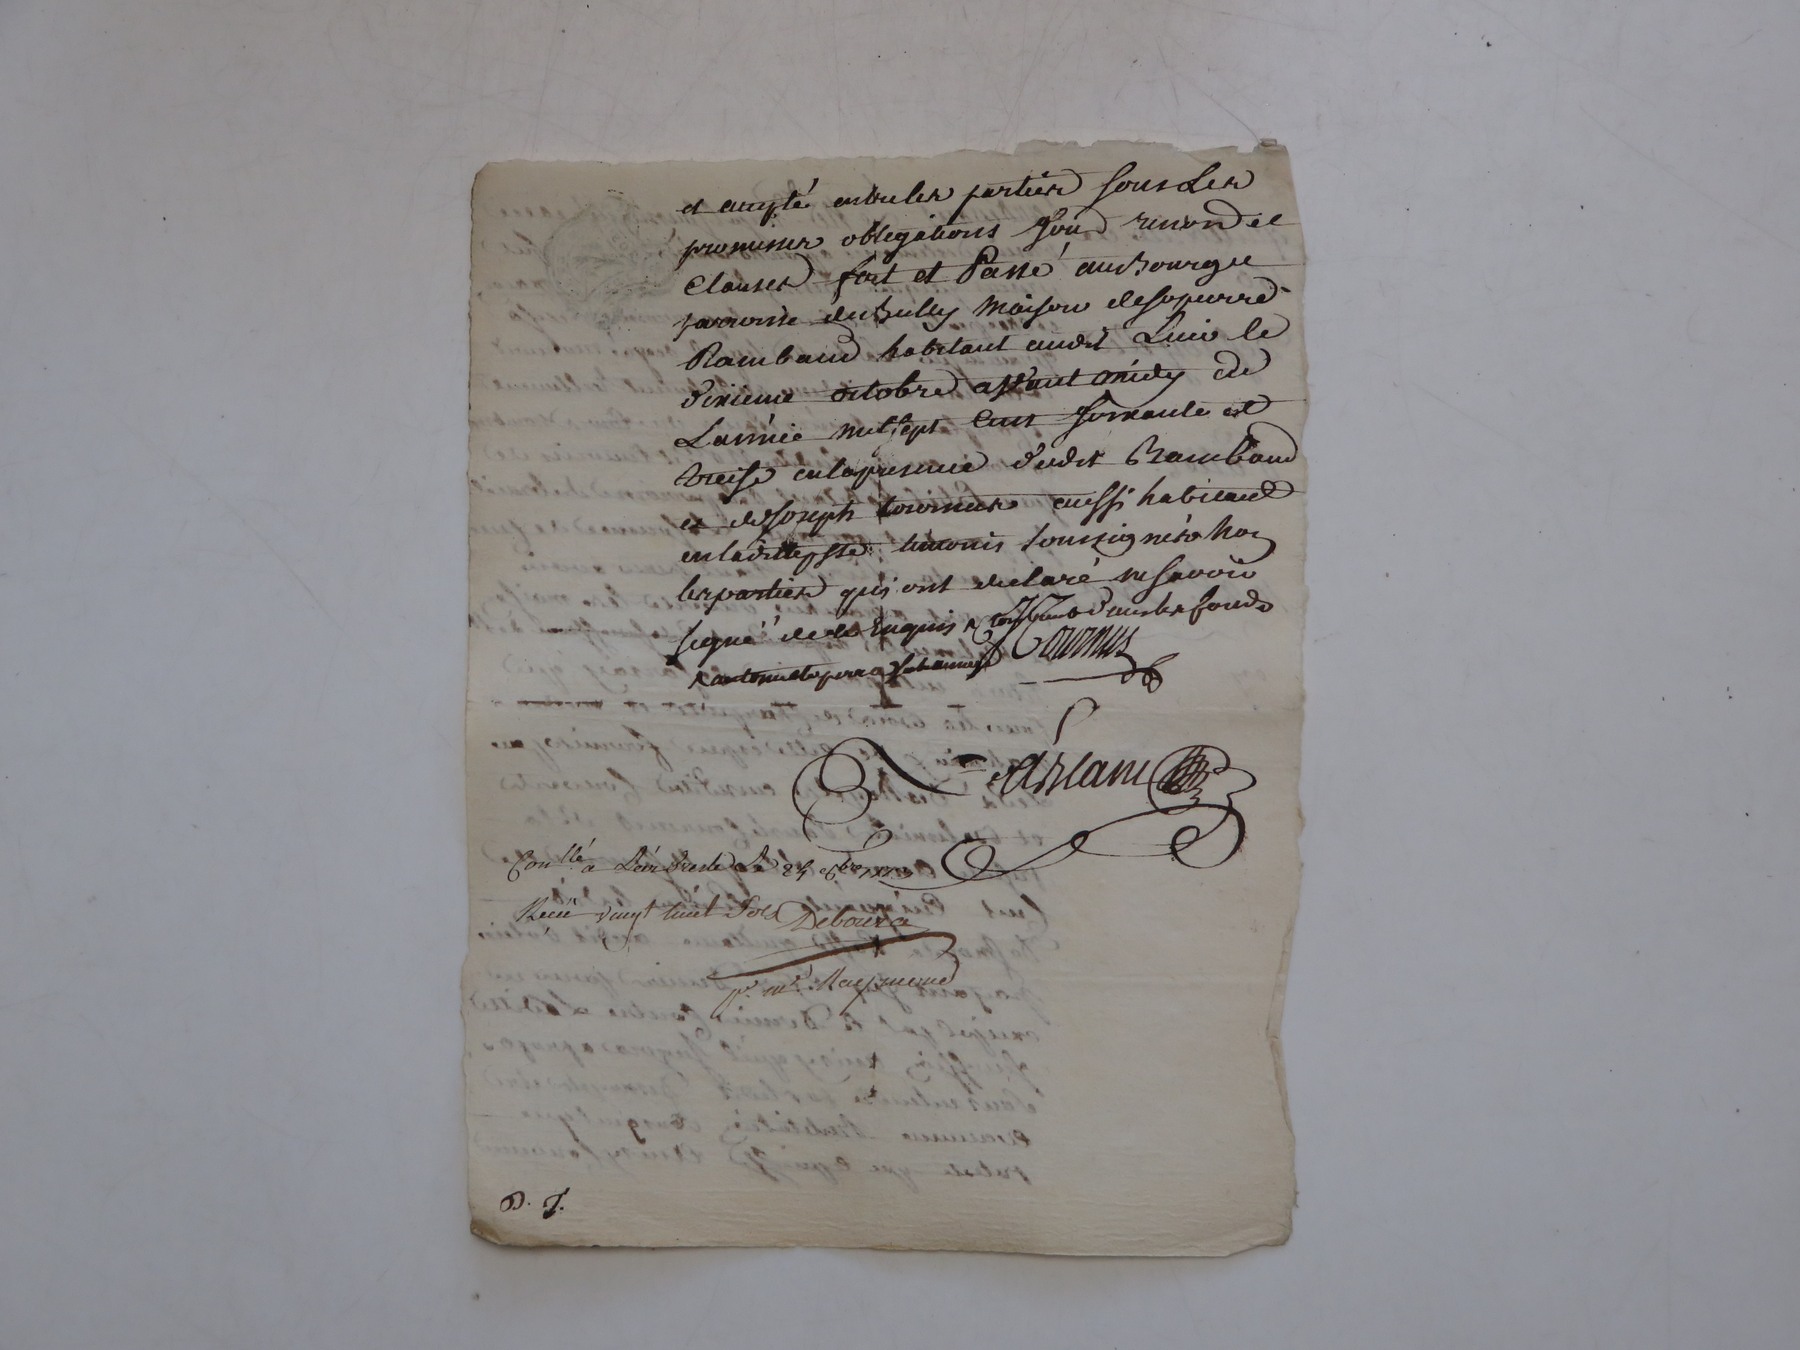 et accepté entre les parties sous Les
promisses obligations Soud renond et
Clauses fait et Passé au Bourg et
parroisse de Bully Maison de Sr pierre
Rambaud habitant audit Lieu le
dixieme octobre avant midy de
L'année mil sept Cent soixante et
treise en la presence dudit Rambaud
et de Joseph tournus aussi habitant
en laditte psse temoins soussignés non
les parties qui ont declaré ne savoir
signé de ce Enquis
Tournus
Contllé a Le 24 8bre 1773
Recu vingt huit Sols Debourg
pr. mr. Raymond